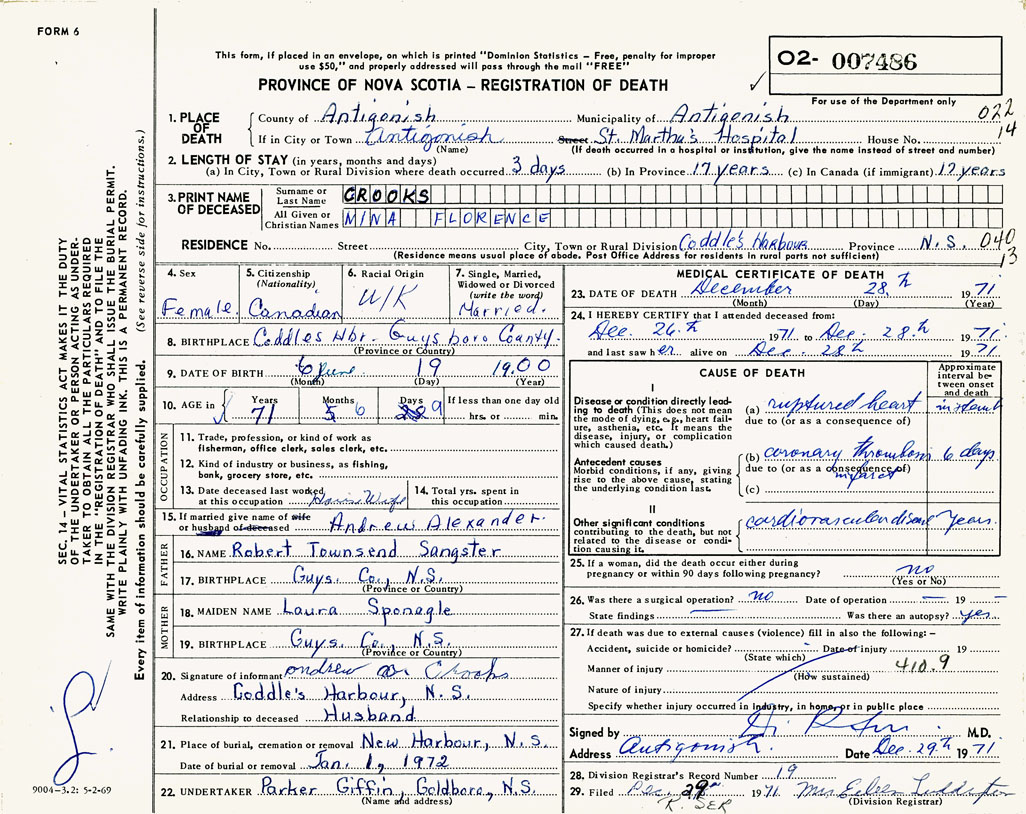 FORM 6
This form, if placed in an envelope, on which is printed "Dominion Statistics – Free, penalty for improper
use $50," and properly addressed will pass through the mail "FREE"
02- 007486
PROVINCE OF NOVA SCOTIA – REGISTRATION OF DEATH
✓
For use of the Department only
1. PLACE OF DEATH
County of Antigonish Municipality of Antigonish 022
If in City or Town Antigonish Street St. Martha's Hospital House No. 14
(Name) (If death occurred in a hospital or institution, give the name instead of street and number)
2. LENGTH OF STAY (in years, months and days)
(a) In City, Town or Rural Division where death occurred 3 days (b) In Province 17 years (c) In Canada (if immigrant) 17 years
3. PRINT NAME OF DECEASED
Surname or Last Name CROOKS
All Given or Christian Names MINA FLORENCE
RESIDENCE No. Street City, Town or Rural Division Coddle's Harbour Province N.S. 040
(Residence means usual place of abode. Post Office Address for residents in rural parts not sufficient) 13
4. Sex
Female.
5. Citizenship
(Nationality)
Canadian
6. Racial Origin
U/K
7. Single, Married,
Widowed or Divorced
(write the word)
Married.
8. BIRTHPLACE Coddles Hbr. Guysboro County.
(Province or Country)
9. DATE OF BIRTH 6 June 19 1900
(Month) (Day) (Year)
10. AGE in
Years Months Days If less than one day old
71 5 6 9 hrs. or min.
OCCUPATION
11. Trade, profession, or kind of work as
fisherman, office clerk, sales clerk, etc.
12. Kind of industry or business, as fishing,
bank, grocery store, etc.
13. Date deceased last worked
at this occupation House Wife
14. Total yrs. spent in
this occupation
15. If married give name of wife
or husband of deceased Andrew Alexander.
FATHER
16. NAME Robert Townsend Sangster
17. BIRTHPLACE Guys. Co., N.S.
(Province or Country)
MOTHER
18. MAIDEN NAME Laura Sponagle
19. BIRTHPLACE Guys. Co., N.S.
(Province or Country)
20. Signature of informant Andrew A Crooks
Address Coddle's Harbour, N.S.
Relationship to deceased Husband
21. Place of burial, cremation or removal New Harbour, N.S.
Date of burial or removal Jan. 1, 1972
22. UNDERTAKER Parker Giffin, Goldboro, N.S.
(Name and address)
MEDICAL CERTIFICATE OF DEATH
23. DATE OF DEATH December 28th 1971
(Month) (Day) (Year)
24. I HEREBY CERTIFY that I attended deceased from:
Dec. 26th 1971 to Dec. 28th 1971
and last saw her alive on Dec. 28th 1971
CAUSE OF DEATH
Approximate
interval be-
tween onset
and death
I
Disease or condition directly lead-
ing to death (This does not mean
the mode of dying, e.g., heart fail-
ure, asthenia, etc. It means the
disease, injury, or complication
which caused death.)
(a) ruptured heart
due to (or as a consequence of)
Antecedent causes
Morbid conditions, if any, giving
rise to the above cause, stating
the underlying condition last.
(b) coronary thrombosis 6 days
due to (or as a consequence of)
infarct
(c)
II
Other significant conditions
contributing to the death, but not
related to the disease or condi-
tion causing it.
cardiovascular disease years.
25. If a woman, did the death occur either during
pregnancy or within 90 days following pregnancy? no
(Yes or No)
26. Was there a surgical operation? no Date of operation – 19 –
State findings Was there an autopsy? yes
27. If death was due to external causes (violence) fill in also the following: –
Accident, suicide or homicide? Date of injury 19
(State which)
Manner of injury 410.9
(How sustained)
Nature of injury
Specify whether injury occurred in industry, in home, or in public place
Signed by M.D.
Address Antigonish. Date Dec. 29th 1971
28. Division Registrar's Record Number 19
29. Filed Dec. 29th 1971 Mrs Eileen
(Division Registrar)
R. SER
SEC. 14 – VITAL STATISTICS ACT MAKES IT THE DUTY
OF THE UNDERTAKER OR PERSON ACTING AS UNDER-
TAKER TO OBTAIN ALL THE PARTICULARS REQUIRED
IN THE "REGISTRATION OF DEATH" AND TO FILE THE
SAME WITH THE DIVISION REGISTRAR WHO SHALL ISSUE THE BURIAL PERMIT.
WRITE PLAINLY WITH UNFADING INK. THIS IS A PERMANENT RECORD.
Every item of information should be carefully supplied. (See reverse side for instructions.)
9004-3.2: 5-2-69